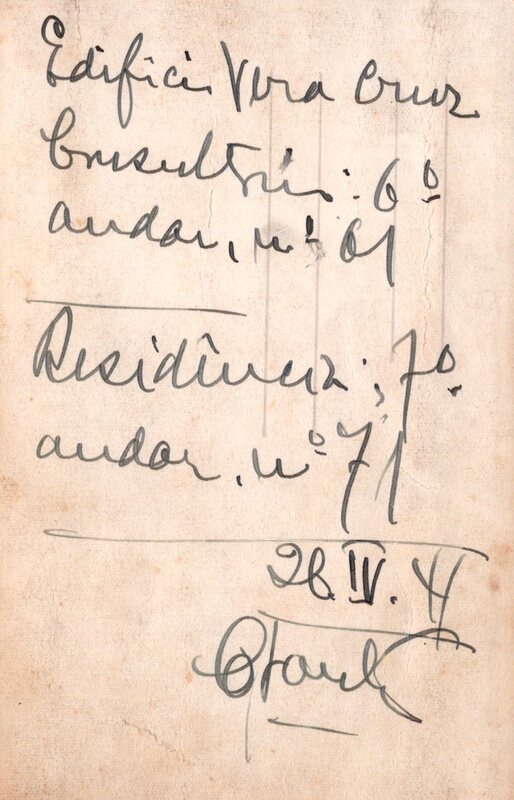 Edifício Vera Cruz
Consultório: 6º
andar, nº 61
Residência: 7º
andar, nº 71
28.IV.